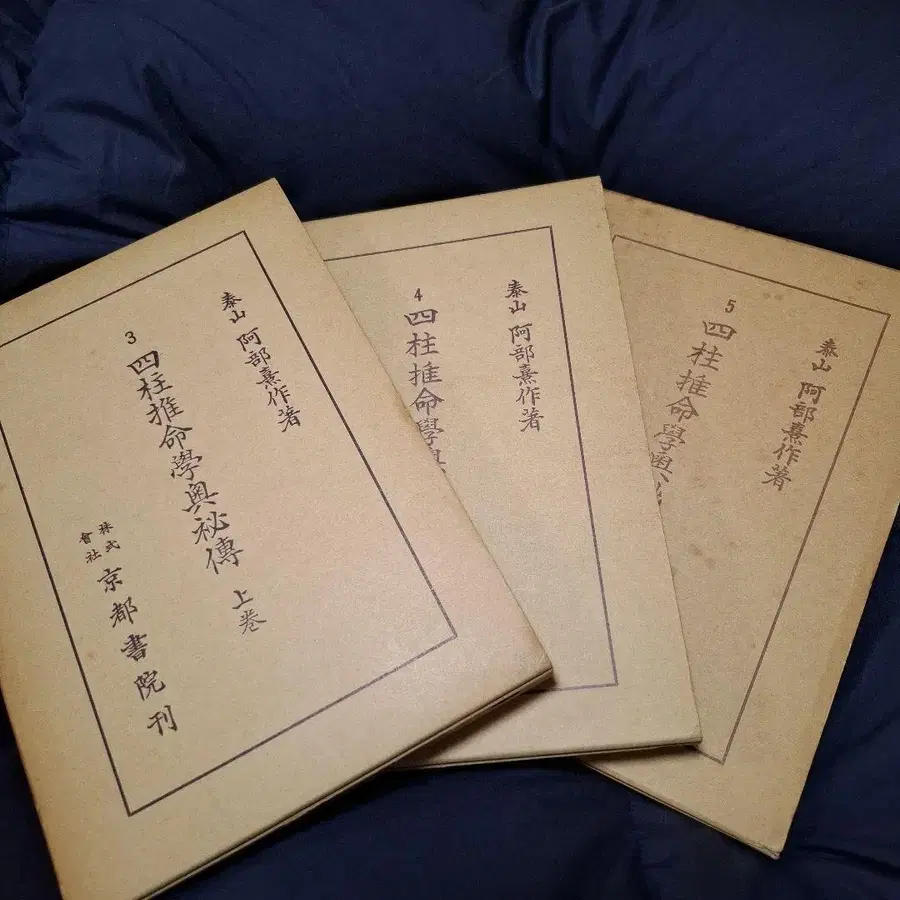 泰山 阿部熹作著
3 四柱推命學奥祕傳 上巻
株式會社 京都書院刊
泰山 阿部熹作著
4 四柱推命學奥
泰山 阿部熹作著
5 四柱推命學奥祕